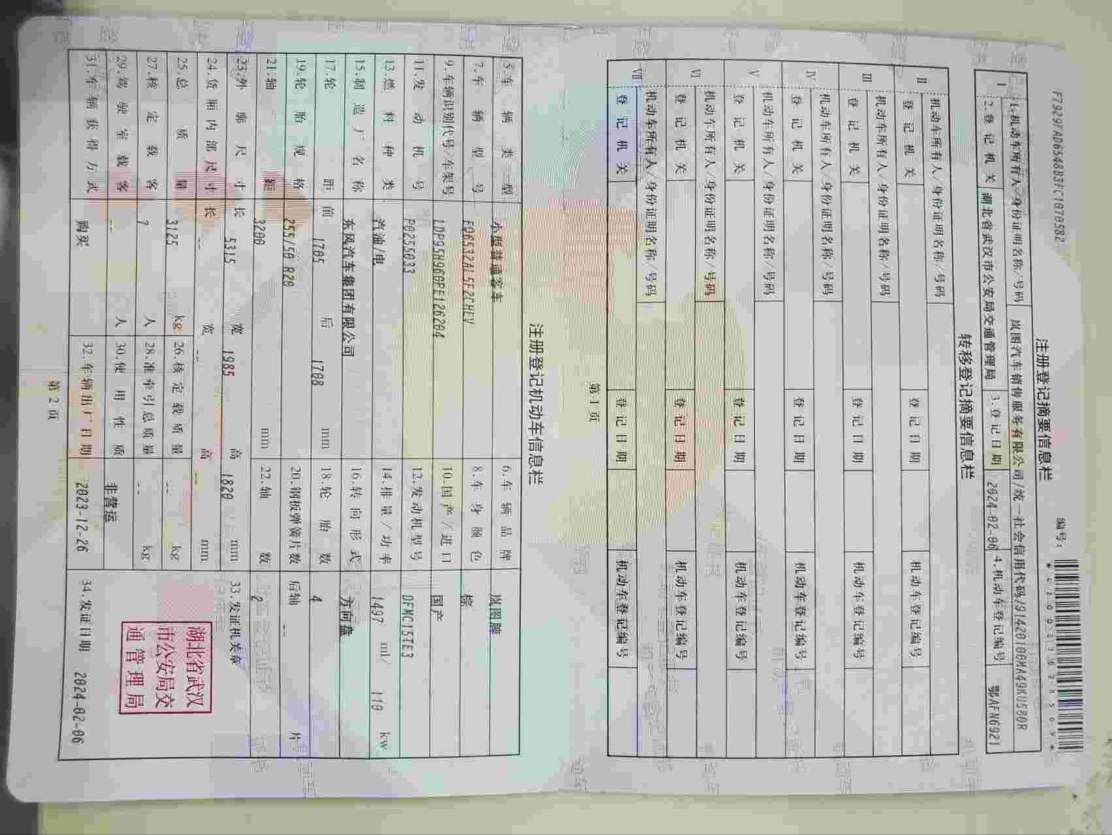 注册登记摘要信息栏
编号:
F7929FAD6548B3FC1070582
I 1.机动车所有人/身份证明名称/号码 岚图汽车销售服务有限公司/统一社会信用代码/91420100MA49KU580R
2.登记机关 湖北省武汉市公安局交通管理局 3.登记日期 2024-02-06 4.机动车登记编号 鄂AFN6921
转移登记摘要信息栏
II 机动车所有人/身份证明名称/号码
登记机关 登记日期 机动车登记编号
III 机动车所有人/身份证明名称/号码
登记机关 登记日期 机动车登记编号
IV 机动车所有人/身份证明名称/号码
登记机关 登记日期 机动车登记编号
V 机动车所有人/身份证明名称/号码
登记机关 登记日期 机动车登记编号
VI 机动车所有人/身份证明名称/号码
登记机关 登记日期 机动车登记编号
VII 机动车所有人/身份证明名称/号码
登记机关 登记日期 机动车登记编号
第1页
注册登记机动车信息栏
5.车辆类型 小型普通客车 6.车辆品牌 岚图牌
7.车辆型号 EQ6532AL5F2CHEV 8.车身颜色 棕
9.车辆识别代号/车架号 LDP95H960PE126204 10.国产/进口 国产
11.发动机号 P0255033 12.发动机型号 DFMC15TE3
13.燃料种类 汽油/电 14.排量/功率 1497 ml/ 110 kw
15.制造厂名称 东风汽车集团有限公司 16.转向形式 方向盘
17.轮距 前 1705 后 1708 mm 18.轮胎数 4
19.轮胎规格 255/50 R20 20.钢板弹簧片数 后轴 -- 片
21.轴距 3200 mm 22.轴数 2
23.外廓尺寸 长 5315 宽 1985 高 1820 mm 33.发证机关章
24.货厢内部尺寸 长 -- 宽 -- 高 -- mm
25.总质量 3125 kg 26.核定载质量 -- kg
27.核定载客 7 人 28.准牵引总质量 -- kg
29.驾驶室载客 -- 人 30.使用性质 非营运
31.车辆获得方式 购买 32.车辆出厂日期 2023-12-26 34.发证日期 2024-02-06
湖北省武汉
市公安局交
通管理局
第2页